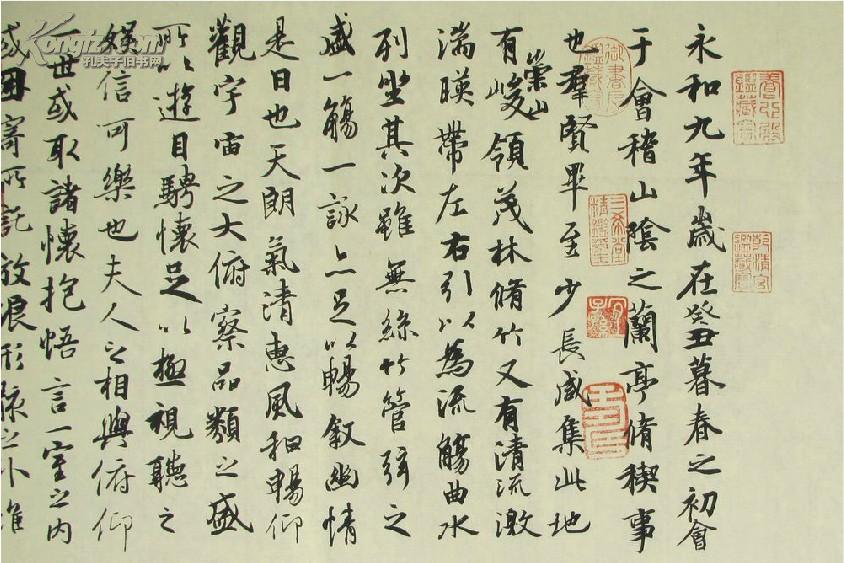 永和九年歲在癸丑暮春之初會
于會稽山陰之蘭亭脩稧事
也羣賢畢至少長咸集此地
有崇山峻領茂林脩竹又有清流激
湍暎帶左右引以為流觴曲水
列坐其次雖無絲竹管弦之
盛一觴一詠亦足以暢敘幽情
是日也天朗氣清惠風和暢仰
觀宇宙之大俯察品類之盛
所以遊目騁懷足以極視聽之
娛信可樂也夫人之相與俯仰
一世或取諸懷抱悟言一室之內
或因寄所託放浪形骸之外雖
Kongfz.com
孔夫子旧书网
三希堂精鑑璽